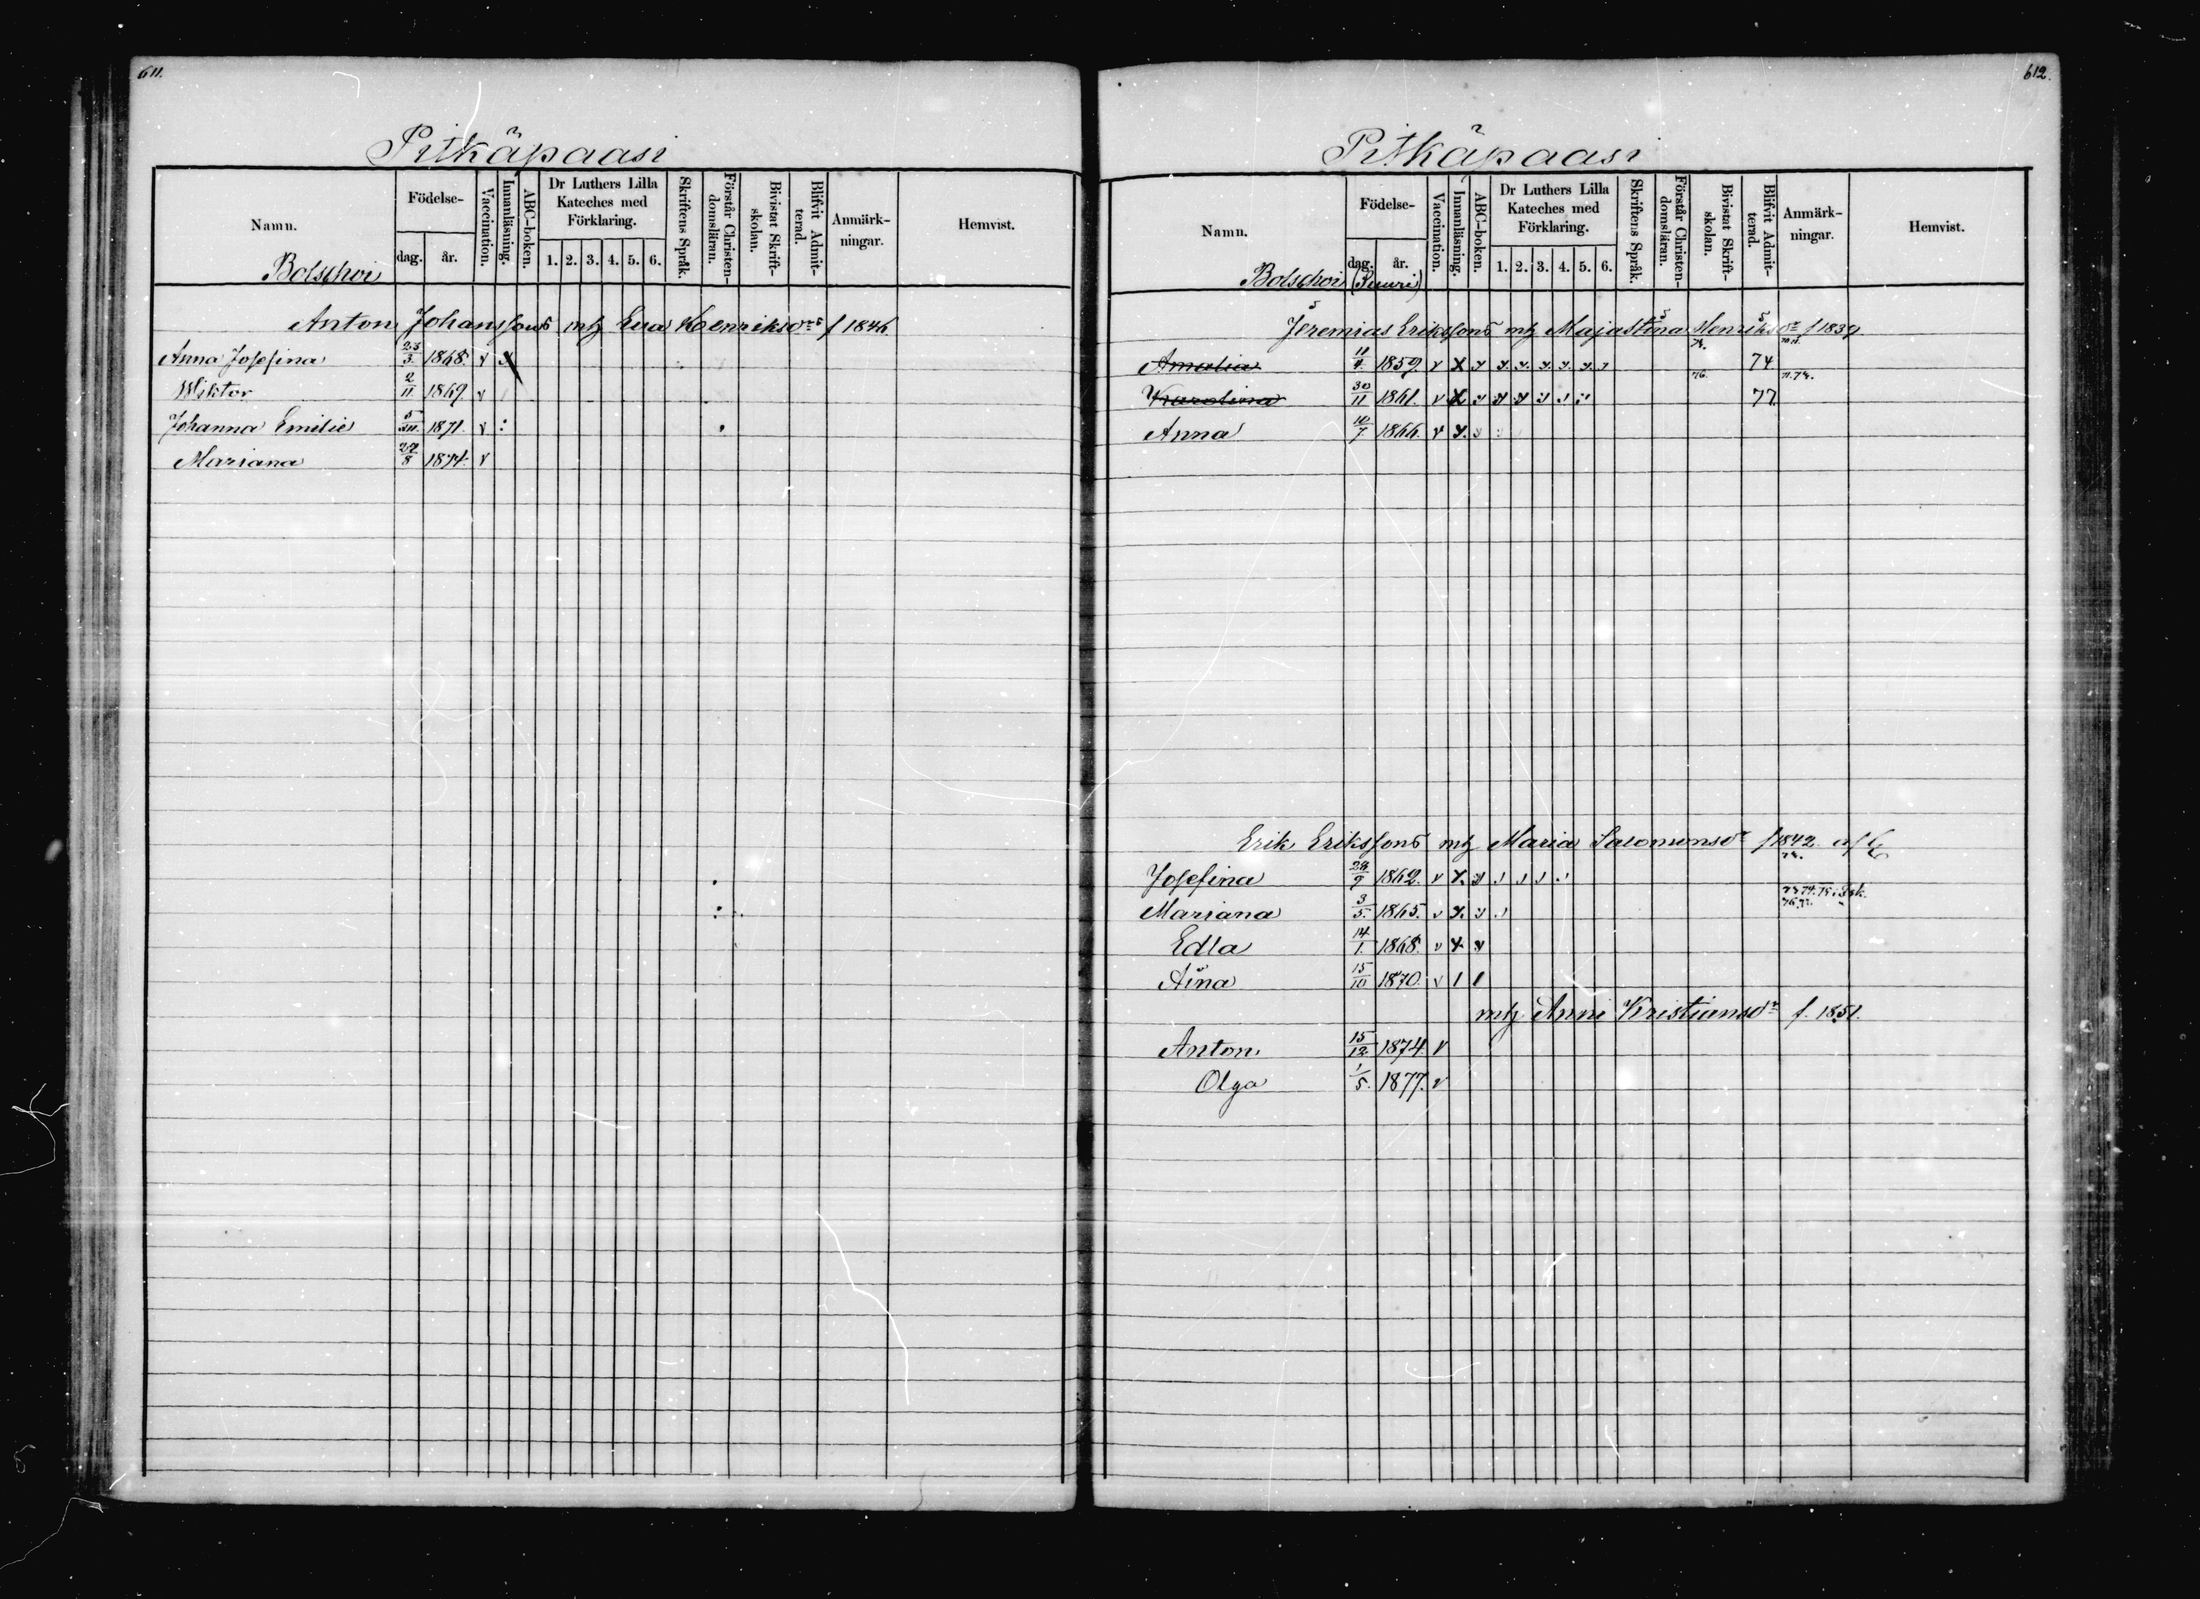 611.
Pitkäpaasi
Namn. Födelse- dag. år. Vaccination. Innanläsning. ABC-boken. Dr Luthers Lilla Kateches med Förklaring. 1. 2. 3. 4. 5. 6. Skriftens Språk. Förstår Christendomsläran. Bivistat Skriftskolan. Blifvit Admitterad. Anmärkningar. Hemvist.
Bolschoi
Anton Johanssons mh Eva Henriksdr f 1846
Anna Josefina 23/3. 1868. v
Wiktor 2/11 1869. v
Johanna Emilie 1871. v :
Mariana 22/8 1874. v
612.
Pitkäpaasi
Namn. Födelse- dag. år. Vaccination. Innanläsning. ABC-boken. Dr Luthers Lilla Kateches med Förklaring. 1. 2. 3. 4. 5. 6. Skriftens Språk. Förstår Christendomsläran. Bivistat Skriftskolan. Blifvit Admitterad. Anmärkningar. Hemvist.
Bolschoi (Suuri)
Jeremias Erikssons mh Majastina Henriksdr f 1839
Amalia 11/4. 1859. v x 74
Karolina 30/11 1861. v x 76. 77
Anna 10/7. 1866. v x
Erik Erikssons mh Maria Salomonsdr f 1842
Josefina 28/9 1862. v x
Mariana 3/5. 1865. v x
Edla 14/1. 1868. v x
Aina 15/10 1870. v
mh Anni Kristiansdr f. 1851.
Anton 15/12 1874. v
Olga 1/5. 1877. v